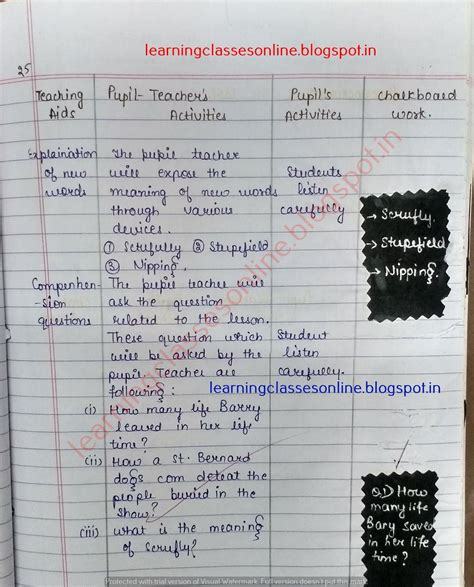 learningclassesonline.blogspot.in
25
Teaching Aids
Pupil-Teacher's Activities
Pupil's Activities
Chalkboard work.
Explaination of new words
The pupil teacher
will expose the
meaning of new words
through various
devices.
① Scrufully ② Stupefield
③ Nipping.
Students
listen
carefully
→ Scrufly.
→ Stupefield
→ Nipping.
Compenhen-
-sion
questions
The pupil teacher will
ask the question
related to the lesson.
These question which
will be asked by the
pupil Teacher are
following:
Student
listen
carefully.
learningclassesonline.blogspot.in
(i) How many life Barry
leaved in her life
time?
(ii) How a St. Bernard
dogs com deteat the
people buried in the
Show?
(iii) What is the meaning
of scrufly?
Q.1) How
many life
Bary saved
in her life
time?
learningclassesonline.blogspot.in
Protected with trial version of Visual Watermark. Full version doesn't put this mark.